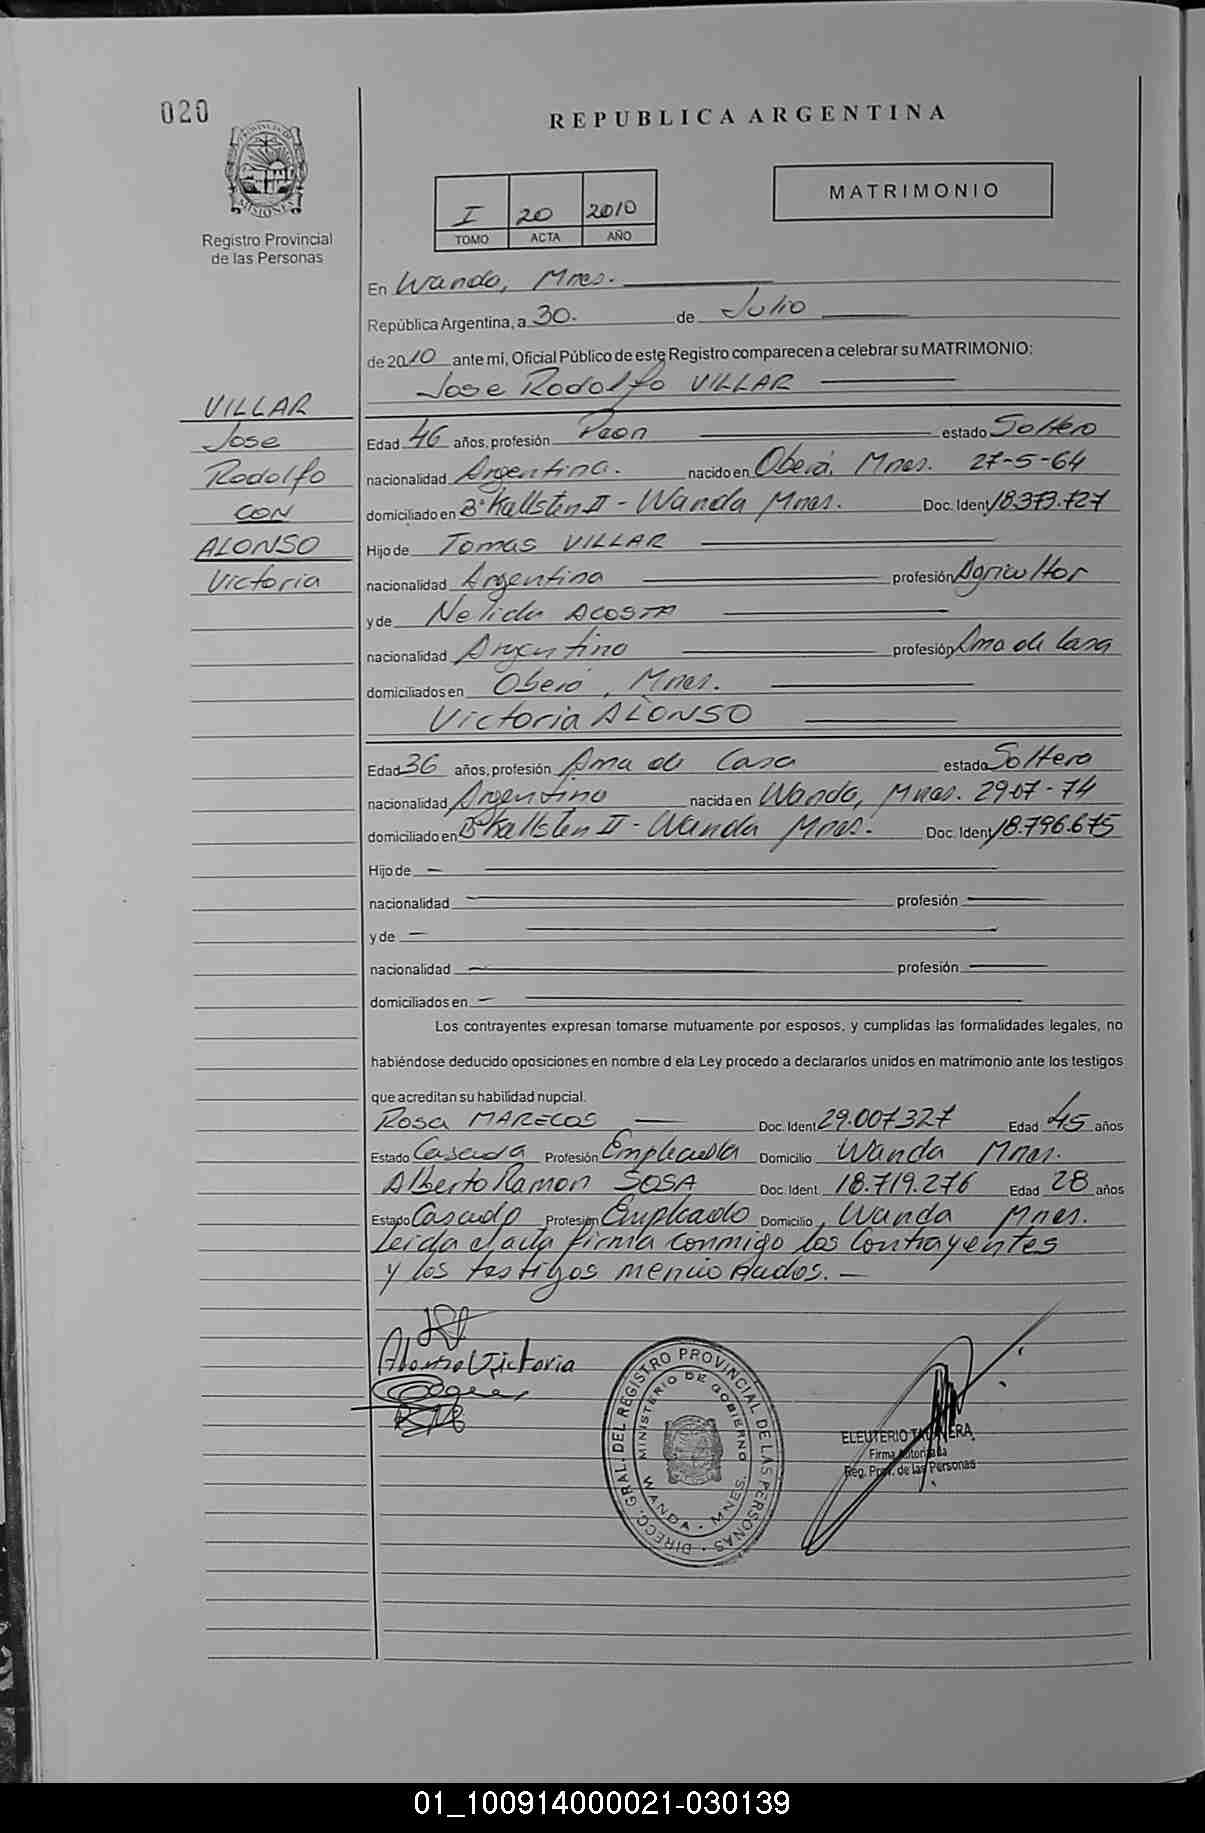 020
REPUBLICA ARGENTINA
PROVINCIA DE MISIONES
Registro Provincial
de las Personas
I 20 2010
TOMO ACTA AÑO
MATRIMONIO
En Wanda, Mnes.
República Argentina, a 30. de Julio
de 2010 ante mi, Oficial Público de este Registro comparecen a celebrar su MATRIMONIO:
Jose Rodolfo VILLAR
VILLAR
Jose
Rodolfo
CON
ALONSO
Victoria
Edad 46 años, profesión Peon estado Soltero
nacionalidad Argentina. nacido en Oberá, Mnes. 27-5-64
domiciliado en B° Kallsten II - Wanda Mnes. Doc. Ident 18.373.727
Hijo de Tomas VILLAR
nacionalidad Argentina profesión Agricultor
y de Nelida ACOSTA
nacionalidad Argentina profesión Ama de Casa
domiciliados en Oberá, Mnes.
Victoria ALONSO
Edad 36 años, profesión Ama de Casa estado Soltera
nacionalidad Argentina nacida en Wanda, Mnes. 29-07-74
domiciliado en B° Kallsten II - Wanda Mnes. Doc. Ident 18.796.675
Hijo de —
nacionalidad profesión
y de —
nacionalidad — profesión
domiciliados en —
Los contrayentes expresan tomarse mutuamente por esposos, y cumplidas las formalidades legales, no
habiéndose deducido oposiciones en nombre d ela Ley procedo a declararlos unidos en matrimonio ante los testigos
que acreditan su habilidad nupcial.
Rosa MARECOS — Doc. Ident 29.007.327 Edad 45 años
Estado Casada Profesión Empleada Domicilio Wanda Mnes.
Alberto Ramon SOSA Doc. Ident 18.719.276 Edad 28 años
Estado Casado Profesión Empleado Domicilio Wanda Mnes.
Leida el acta firma conmigo los Contrayentes
y los testigos mencionados. —
Alonso Victoria
DIRECC. GRAL. DEL REGISTRO PROVINCIAL DE LAS PERSONAS
MINISTERIO DE GOBIERNO
WANDA - MNES.
ELEUTERIO
Firma Autorizada
Reg. Prov. de las Personas
01_100914000021-030139